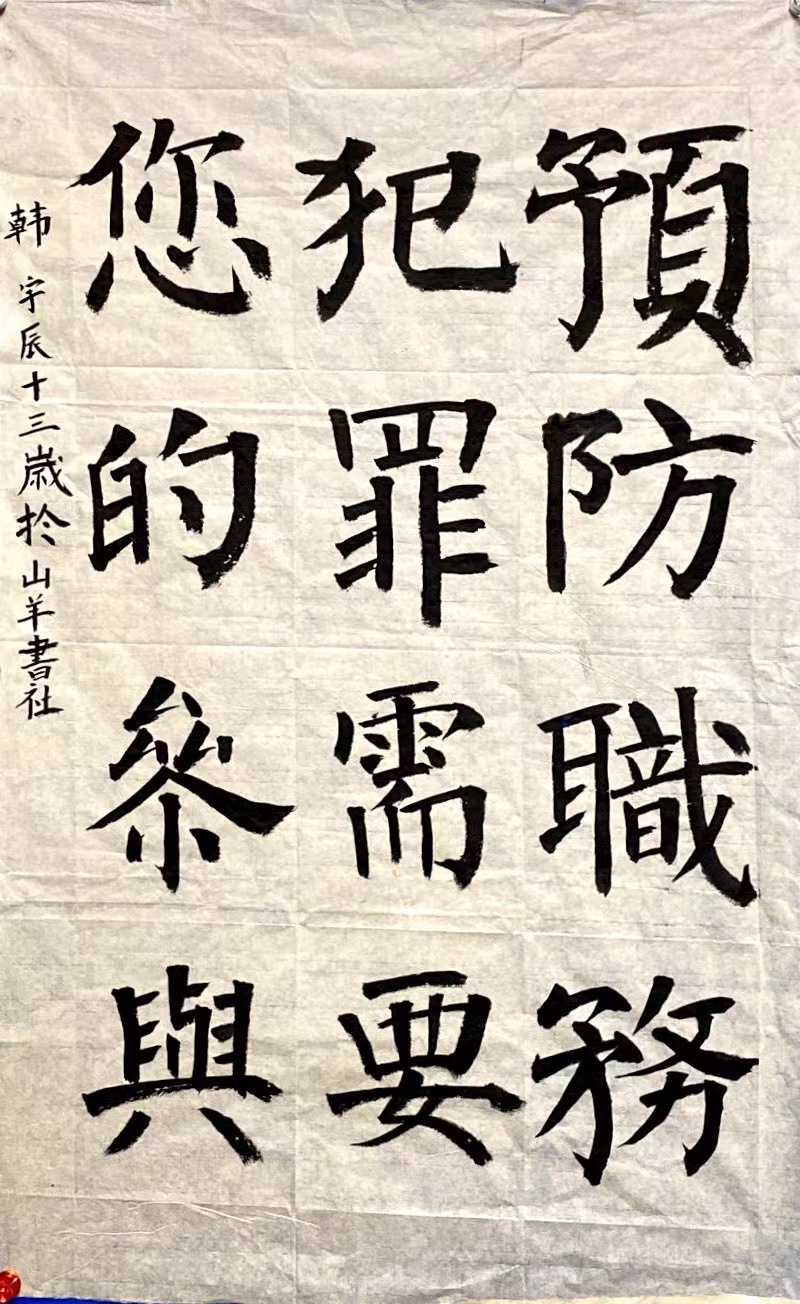 預防職務
犯罪需要
您的參與
韩宇辰十三歲於山羊書社